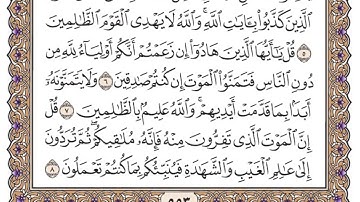 الَّذِينَ كَذَّبُوا۟ بِـَٔايَـٰتِ ٱللَّهِ ۚ وَٱللَّهُ لَا يَهْدِى ٱلْقَوْمَ ٱلظَّـٰلِمِينَ
٥ قُلْ يَـٰٓأَيُّهَا ٱلَّذِينَ هَادُوٓا۟ إِن زَعَمْتُمْ أَنَّكُمْ أَوْلِيَآءُ لِلَّهِ مِن
دُونِ ٱلنَّاسِ فَتَمَنَّوُا۟ ٱلْمَوْتَ إِن كُنتُمْ صَـٰدِقِينَ ٦ وَلَا يَتَمَنَّوْنَهُۥٓ
أَبَدًۢا بِمَا قَدَّمَتْ أَيْدِيهِمْ ۚ وَٱللَّهُ عَلِيمٌۢ بِٱلظَّـٰلِمِينَ ٧ قُلْ
إِنَّ ٱلْمَوْتَ ٱلَّذِى تَفِرُّونَ مِنْهُ فَإِنَّهُۥ مُلَـٰقِيكُمْ ۖ ثُمَّ تُرَدُّونَ
إِلَىٰ عَـٰلِمِ ٱلْغَيْبِ وَٱلشَّهَـٰدَةِ فَيُنَبِّئُكُم بِمَا كُنتُمْ تَعْمَلُونَ ٨
٥٥٣